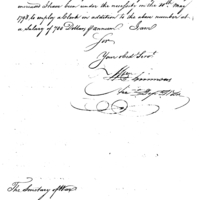 I have been under the necessity on the 10th May
1798 to employ a Clerk in addition to the above number at
a salary of 700 Dollars ⅌ annum. I am
Sir
Your Obd Servt
Wm Simmons
The Secretary of War